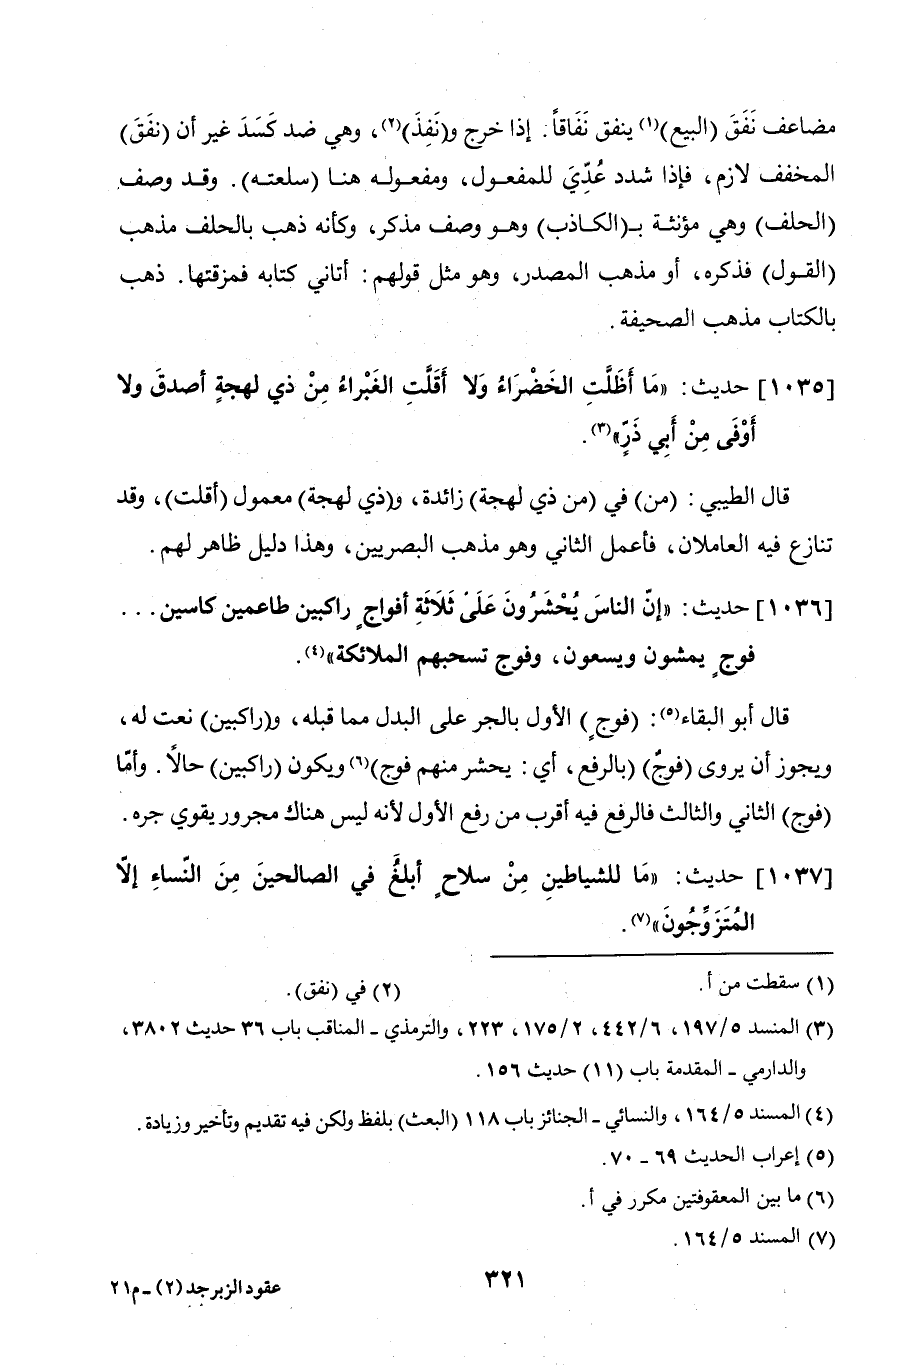 مضاعف نَفَقَ (البيع)(١) ينفق نَفَاقاً. إذا خرج و(نَفِذَ)(٢)، وهي ضد كَسَدَ غير أن (نفَق)
المخفف لازم، فإذا شدد عُدِّيَ للمفعول، ومفعوله هنا (سلعته). وقد وصف
(الحلف) وهي مؤنثة بـ(الكاذب) وهو وصف مذكر، وكأنه ذهب بالحلف مذهب
(القول) فذكره، أو مذهب المصدر، وهو مثل قولهم: أتاني كتابه فمزقتها. ذهب
بالكتاب مذهب الصحيفة.
[١٠٣٥] حديث: «مَا أَظَلَّتِ الخَضْرَاءُ وَلا أَقَلَّتِ الغَبْراءُ مِنْ ذي لهجةٍ أصدقَ ولا
أَوْفَى مِنْ أَبِي ذَرٍّ»(٣).
قال الطيبي: (من) في (من ذي لهجة) زائدة، و(ذي لهجة) معمول (أقلت)، وقد
تنازع فيه العاملان، فأعمل الثاني وهو مذهب البصريين، وهذا دليل ظاهر لهم.
[١٠٣٦] حديث: «إنّ الناسَ يُحْشَرُونَ عَلَى ثَلَاثَةِ أفواجٍ راكبين طاعمين كاسين...
فوجٍ يمشون ويسعون، وفوج تسحبهم الملائكة»(٤).
قال أبو البقاء(٥): (فوجٍ) الأول بالجر على البدل مما قبله، و(راكبين) نعت له،
ويجوز أن يروى (فوجٌ) (بالرفع، أي: يحشر منهم فوج)(٦) ويكون (راكبين) حالاً. وأمّا
(فوج) الثاني والثالث فالرفع فيه أقرب من رفع الأول لأنه ليس هناك مجرور يقوي جره.
[١٠٣٧] حديث: «مَا للشياطينِ مِنْ سلاحٍ أبلغُ في الصالحينَ مِنَ النّساءِ إلّا
المُتَزَوِّجُونَ»(٧).
(١) سقطت من أ.
(٢) في (نفق).
(٣) المنسد ١٩٧/٥، ٤٤٢/٦، ١٧٥/٢، ٢٢٣، والترمذي ـ المناقب باب ٣٦ حديث ٣٨٠٢،
والدارمي ـ المقدمة باب (١١) حديث ١٥٦.
(٤) المسند ١٦٤/٥، والنسائي ـ الجنائز باب ١١٨ (البعث) بلفظ ولكن فيه تقديم وتأخير وزيادة.
(٥) إعراب الحديث ٦٩ ـ ٧٠.
(٦) ما بين المعقوفتين مكرر في أ.
(٧) المسند ١٦٤/٥.
٣٢١
عقود الزبرجد (٢) ـ م٢١